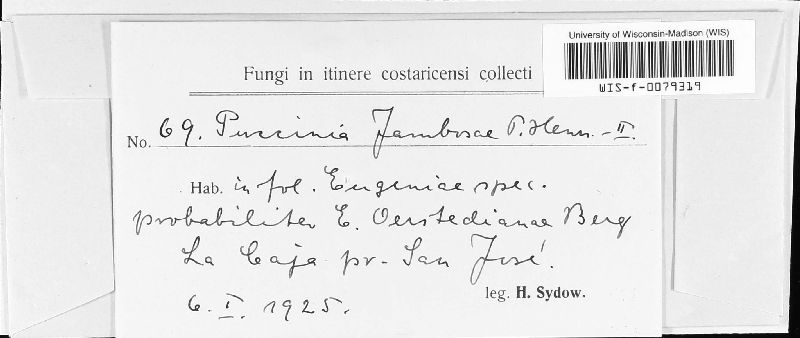 University of Wisconsin-Madison (WIS)
WIS-f-0079319
Fungi in itinere costaricensi collecti
No. 69. Puccinia Jambosae P. Henn. - II.
Hab. in fol. Eugeniae spec.
probabiliter E. Oerstedianae Berg
La Caja pr. San José.
6. I. 1925.
leg. H. Sydow.